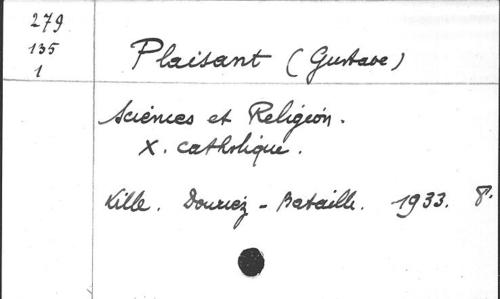 279
135
1
Plaisant (Gustave)
Sciences et Religion.
X. catholique.
Lille. Douriez-Bataille. 1933. 8°.